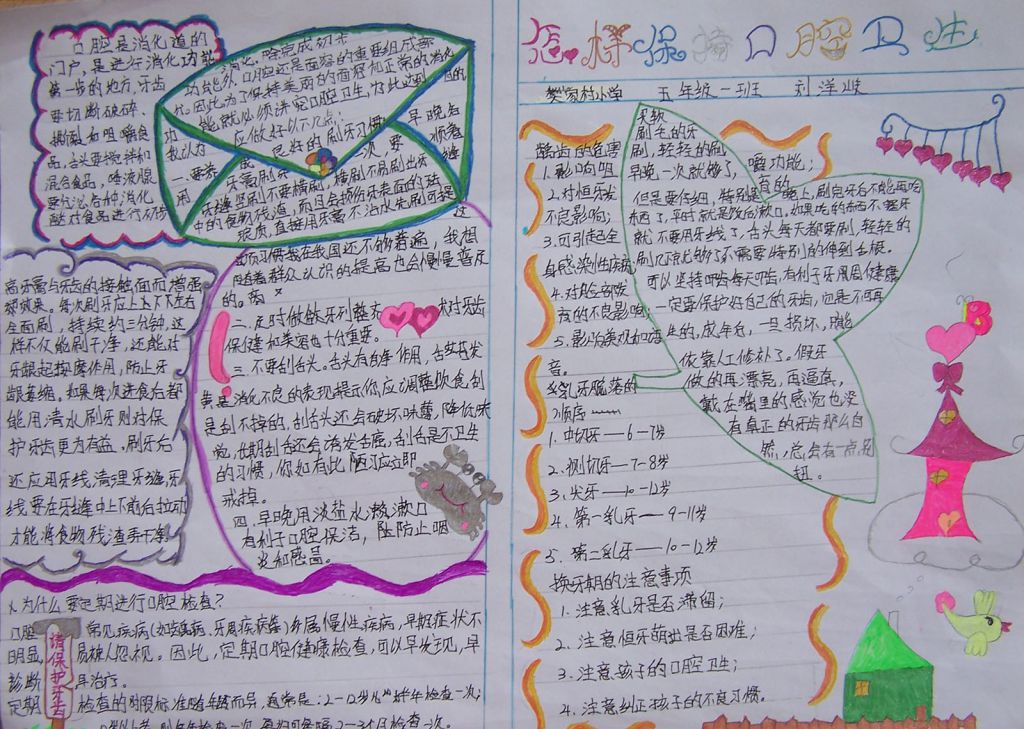 口腔是消化道的
门户，是进行消化功能
第一步的地方，牙齿
要切断破碎、
撕裂和咀嚼食
品，舌头要搅拌和
混合食品，唾液腺
要分泌各种消化
酶对食品进行初步
消化，除完成初步
功能外，口腔还是面容的重要组成部
能就必须讲究口腔卫生，为此
应做好以下几点：
我认为
一.要养
良好的刷牙习惯
早晚各
一次，要
顺着
牙缝竖刷牙不要横刷，横刷不易刷出牙缝
中的食物残渣，而且会损伤牙表面的珐
琅质，直接用牙膏不沾水先刷可提
高牙膏与牙齿的接触面而增强
部效果。每次刷牙应上上下下左右
全面刷，持续约三分钟，这
样不仅能刷干净，还能对
牙龈起按摩作用，防止牙
龈萎缩，如果每次进食后都
能用清水刷牙则对保
护牙齿更为有益。刷牙后
还应用牙线，清理牙缝，牙
线要在牙缝中上下前后拉动
才能将食物残渣弄干净，
这项习惯我在我国还不够普遍，我想
随着群众认识的提高也会慢慢普及
的。
二.定时做做牙列整
术对牙齿
保健和美容也十分重要。
三.不要刮舌头。舌头有自净作用，舌苔发
黄是消化不良的表现提示你应调整饮食刮
是刮不掉的，刮舌头还会破坏味蕾，降低味
觉，长期刮舌还会诱发舌癌，刮舌是不卫生
的习惯，你如有此陋习应立即
戒掉。
四.早晚用淡盐水漱漱口
有利于口腔保洁，
防止咽
炎和感冒。
1.为什么要定期进行口腔检查？
口腔
常见疾病（如龋病、牙周疾病等）多属慢性疾病，早期症状不
明显
易被人忽视。因此，定期口腔健康检查，可以早发现，早
诊断
早治疗。
定期
检查的时限标准随年龄而异，通常是：2—12岁
半年检查一次；
请保护牙齿
怎样保持口腔卫生
樊家村小学 五年级一班 刘洋岐
龋齿的危害
1.影响咀
嚼功能；
2.对恒牙发
育的
不良影响；
3.可引起全
身感染性疾病
4.对脸部发
育的不良影响；
5.影响美观和
音。
乳牙脱落的
顺序——
1.中切牙—6-7岁
2.侧切牙—7-8岁
3.尖牙—10-12岁
4.第一乳牙—9-11岁
5.第二乳牙—10-12岁
换牙期的注意事项
1.注意乳牙是否滞留；
2.注意恒牙萌出是否困难；
3.注意孩子的口腔卫生；
4.注意纠正孩子的不良习惯。
买软
刷毛的牙
刷，轻轻的刷
早晚一次就够了，
但是要仔细，特别是
晚上，刷完牙后不能再吃
东西了，平时就是饭后漱口，如果吃的东西不塞牙
就不要用牙线了，舌头每天都要刷，轻轻的
刷几下就足够了不需要特别的伸到舌根。
可以坚持叩齿每天叩齿，有利于牙周围健康
一定要保护好自己的牙齿，它是不可再
生的，成年后，一旦损坏，只能
依靠人工修补了。假牙
做的再漂亮，再逼真，
戴在嘴里的感觉也没
有真正的牙齿那么自
然，总会有一点别
扭。